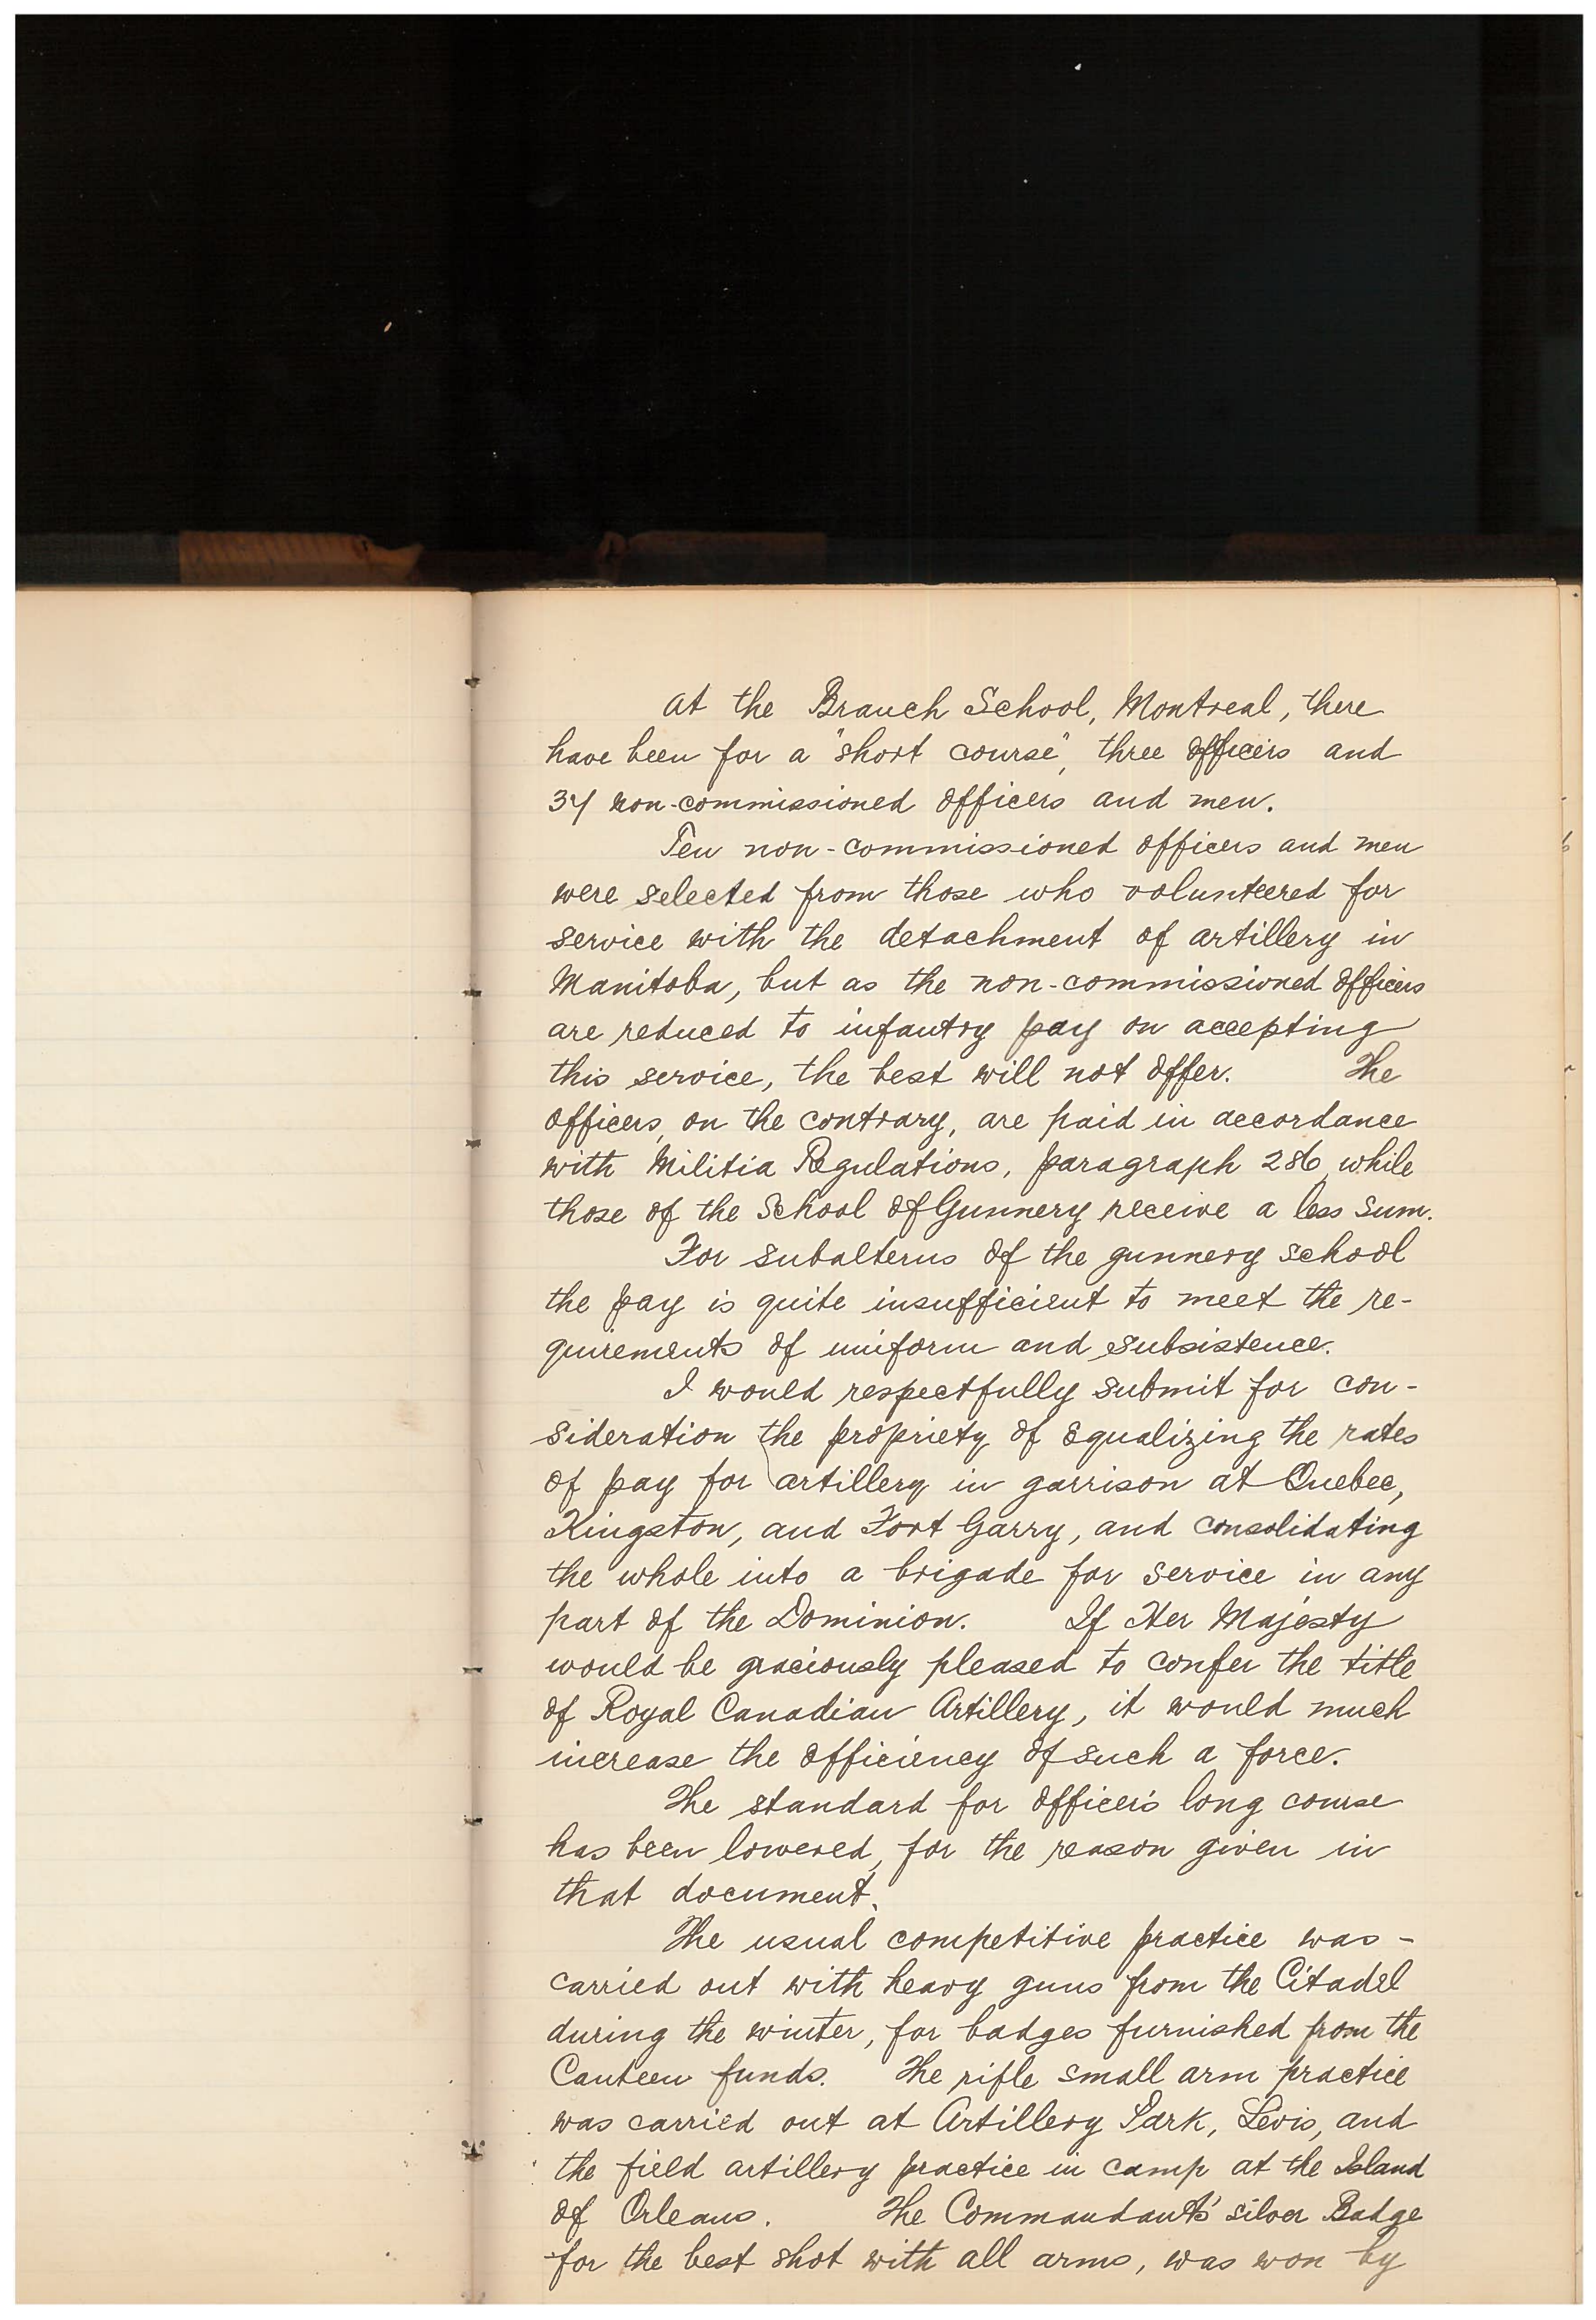 At the Branch School, Montreal, there
have been for a "short course", three officers and
37 non-commissioned officers and men.
Ten non-commissioned officers and men
were selected from those who volunteered for
service with the detachment of artillery in
Manitoba, but as the non-commissioned officers
are reduced to infantry pay on accepting
this service, the best will not offer. The
officers, on the contrary, are paid in accordance
with Militia Regulations, paragraph 286, while
those of the School of Gunnery receive a less sum.
For subalterns of the gunnery school
the pay is quite insufficient to meet the re-
quirements of uniform and subsistence.
I would respectfully submit for con-
sideration the propriety of equalizing the rates
of pay for artillery in garrison at Quebec,
Kingston, and Fort Garry, and consolidating
the whole into a brigade for service in any
part of the Dominion. If Her Majesty
would be graciously pleased to confer the title
of Royal Canadian Artillery, it would much
increase the efficiency of such a force.
The standard for officer's long course
has been lowered, for the reason given in
that document.
The usual competitive practice was -
carried out with heavy guns from the Citadel
during the winter, for badges furnished from the
Canteen funds. The rifle small arm practice
was carried out at Artillery Park, Levis, and
the field artillery practice in camp at the Island
of Orleans. The Commandant's silver Badge
for the best shot with all arms, was won by